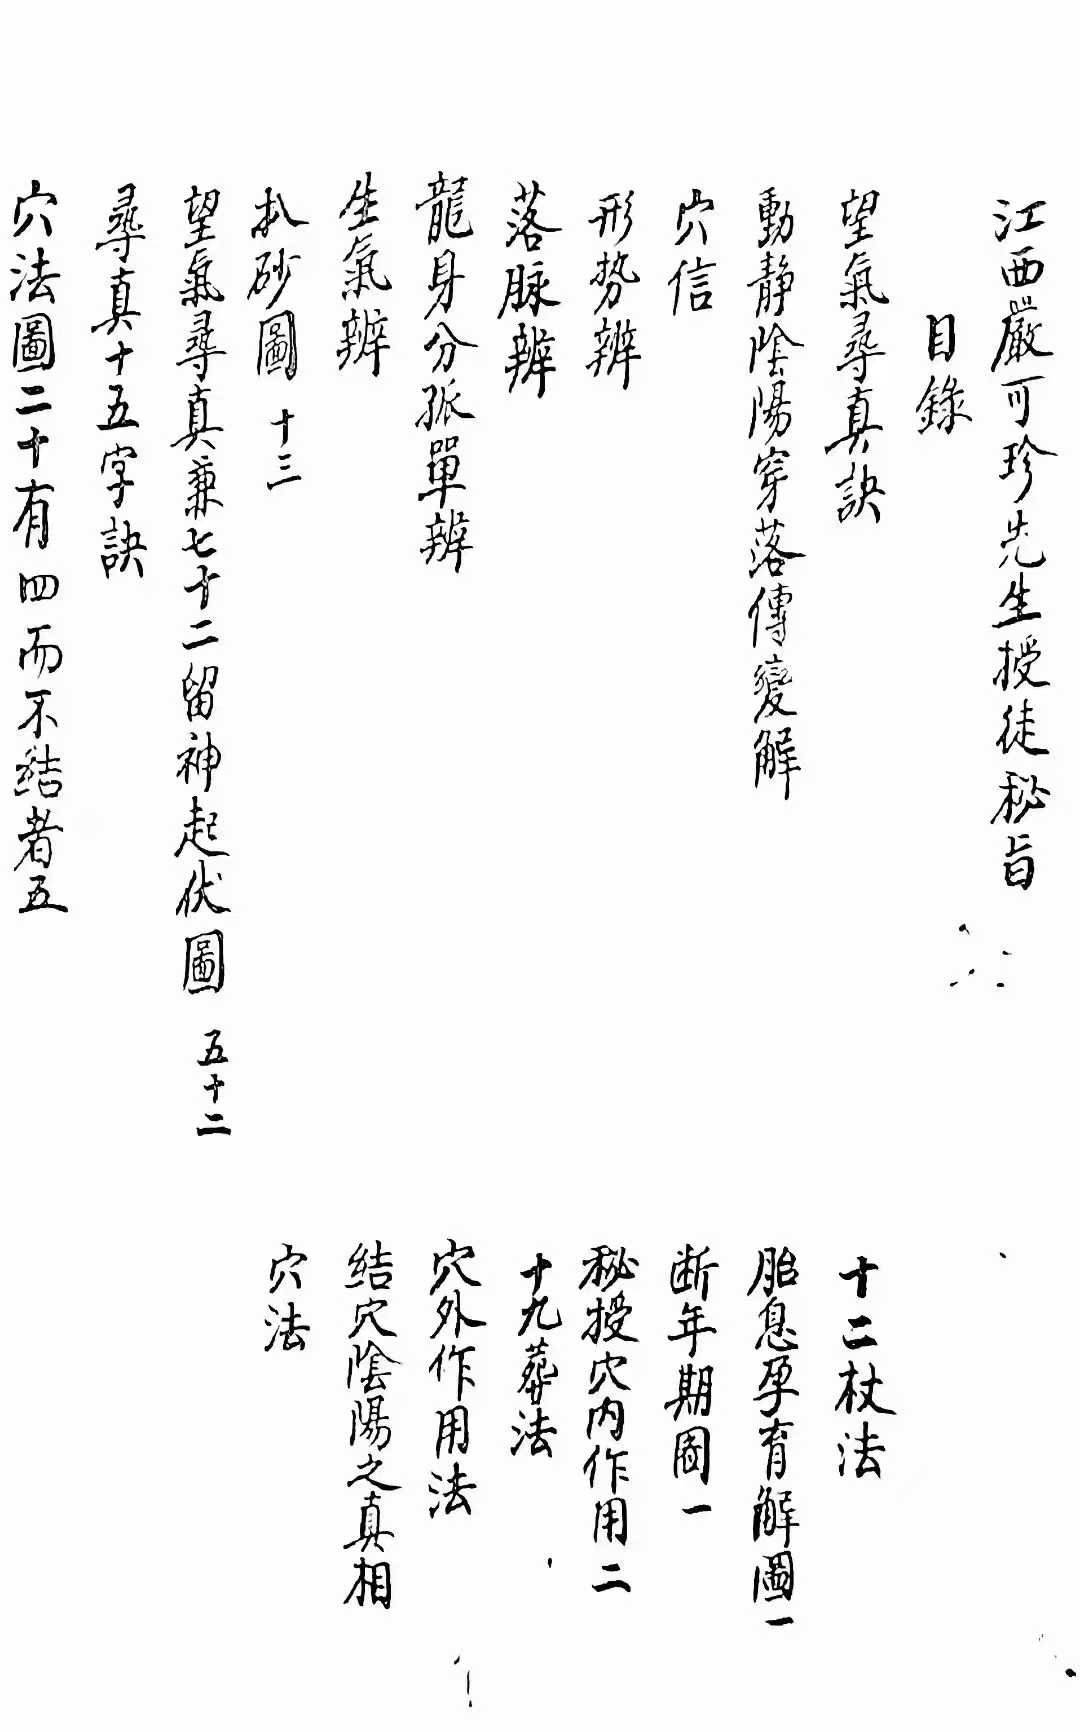 江西嚴可珍先生授徒秘旨
目錄
望氣尋真訣
動靜陰陽穿落傳變解
穴信
形势辨
落脉辨
龍身分孤單辨
生氣辨
扒砂圖 十三
望氣尋真兼七十二留神起伏圖 五十二
尋真十五字訣
穴法圖二十有四而不结者五
十二杖法
胎息孕育解圖一
断年期圖一
秘授穴内作用二
十九葬法
穴外作用法
结穴陰陽之真相
穴法